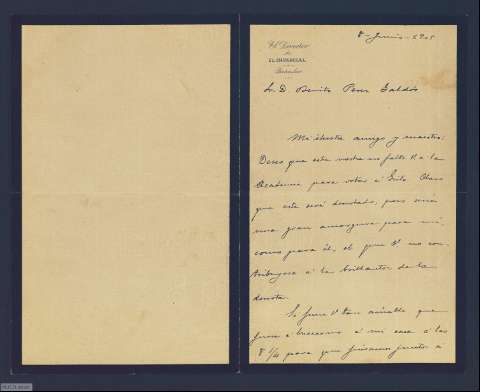 8-Junio-1905
El Director
de
EL IMPARCIAL
Particular
Sr D. Benito Perez Galdós
Mi ilustre amigo y maestro:
Deseo que esta noche no falte V. a la
Academia para votar á
que este será derrotado, pero sería
una gran amargura para mi,
como para él, el que V. no con-
tribuyera á la brillantez de la
derrota.
Si fuera V tan amable que
fuera á buscarme á mi casa á las
8 1/4 para que fuésemos juntos a